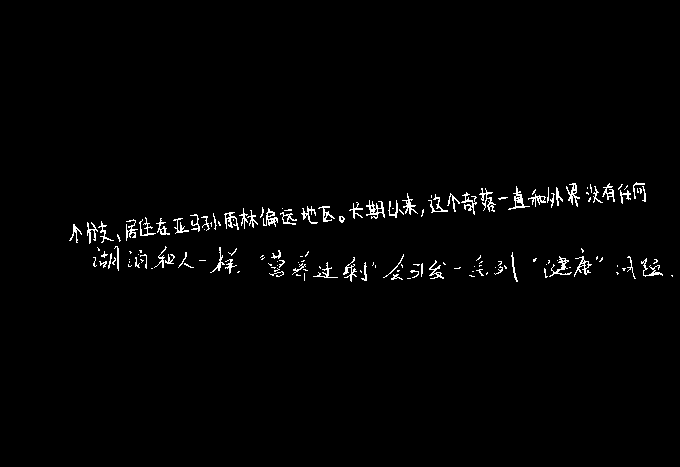 个分支、居住在亚马孙雨林偏远地区。长期以来，这个部落一直和外界没有任何
湖泊和人一样，“营养过剩”会引发一系列“健康”风险．